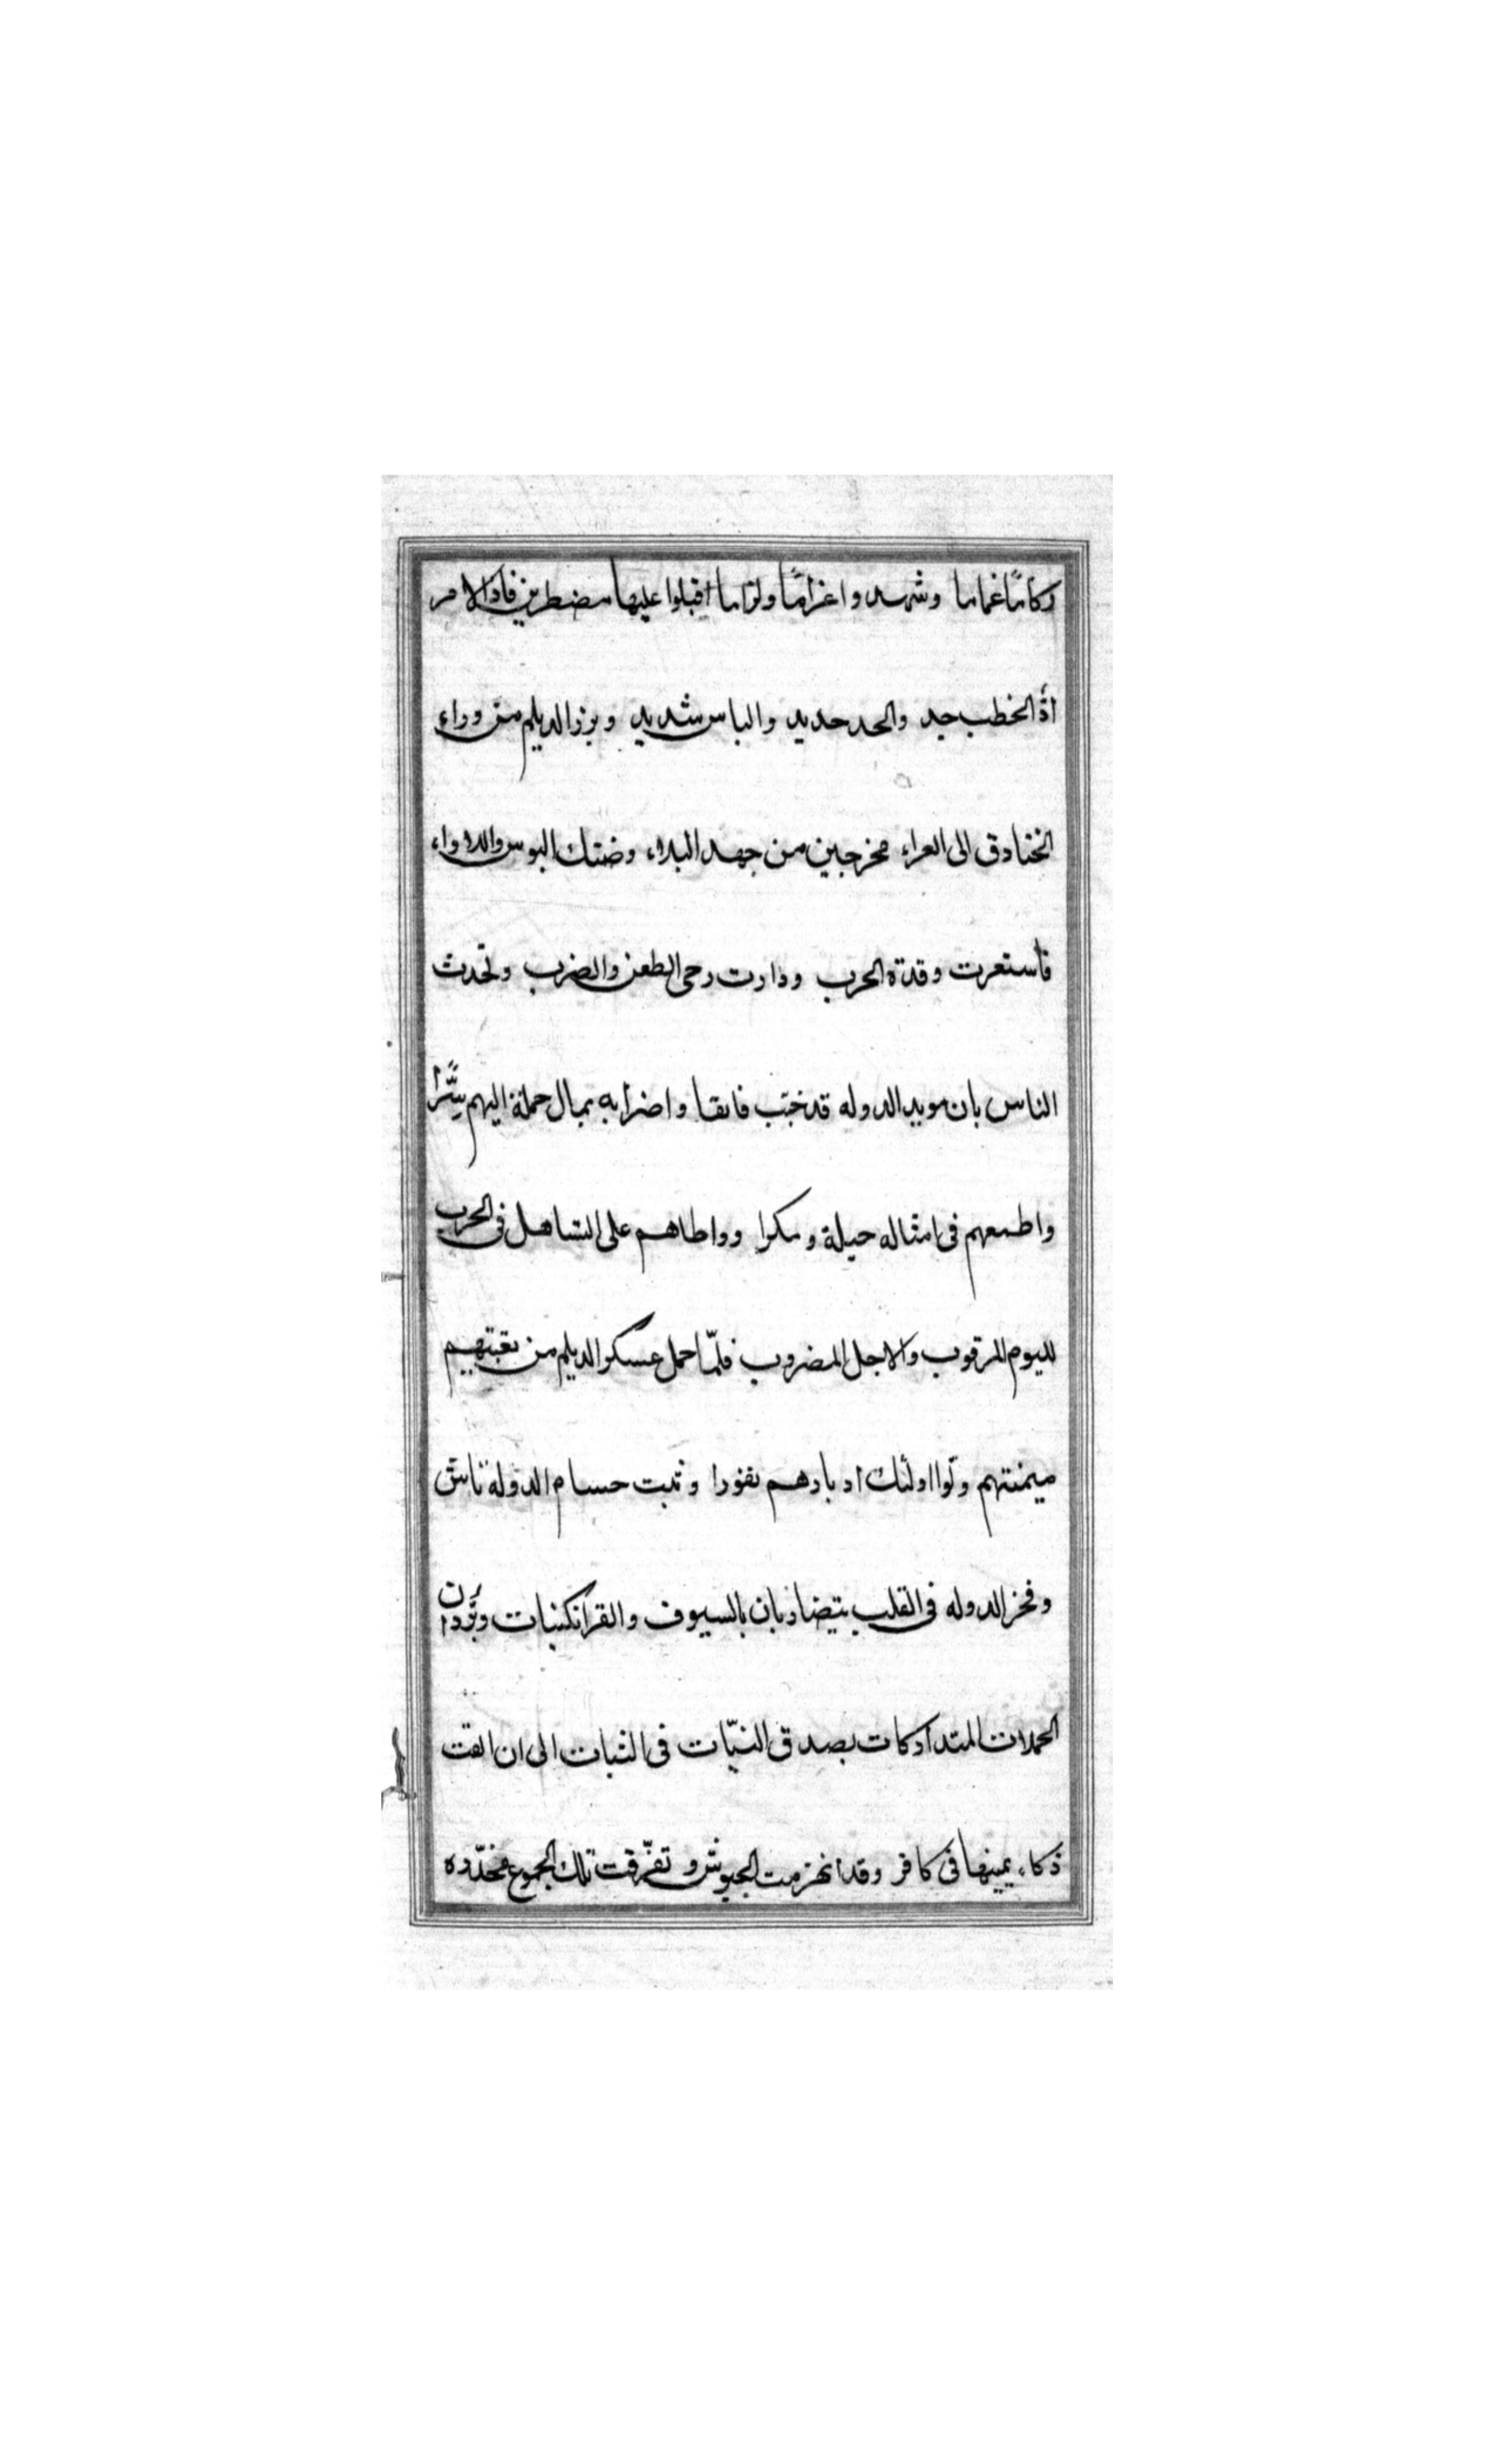 ركامًا غماما وشهدوا غرامًا ولزاما اقبلوا عليها مضطرين فاذا الامر
ادّ الخطب جد والحد حديد والباس شديد وبرز الديلم من وراء
الخنادق الى العراء مخرجين من جهد البلاء وضنك البوس واللاواء
فاستعرت وقدة الحرب ودارت رحى الطعن والضرب وتحدث
الناس بان مويد الدوله قد خبّب فايقا واضرابه بمال حملة اليهم سّرًا
واطمعهم فى امثاله حيلة ومكرا وواطاهم على التساهل فى الحرب
لليوم المرقوب والاجل المضروب فلمّا حمل عسكر الديلم من تعبتهم
ميمنتهم ولّوا اولئك ادبارهم نفورا وثبت حسام الدوله تاش
وفخر الدوله فى القلب يتضاربان بالسيوف والقراتكينيات ويرّدان
الحملات المتداركات بصدق النيّات فى الثبات الى ان القت
ذكاء يمينها فى كافر وقد انهزمت الجيوش وتفّرقت تلك الجموع